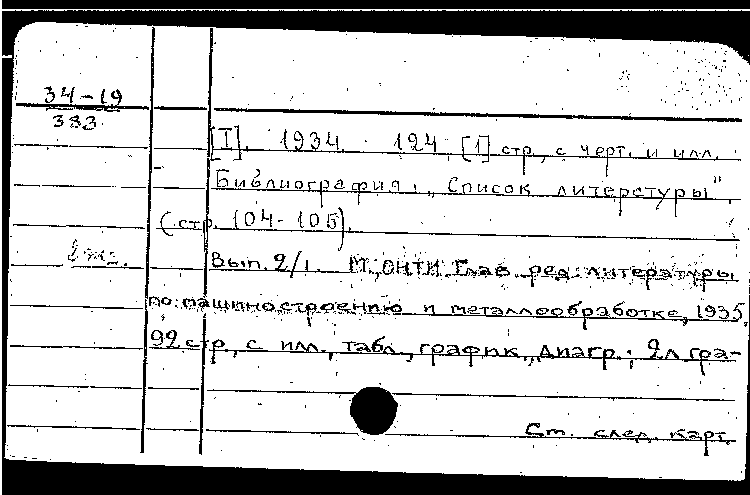 34-19
383
[I]. 1934. 124, [1] стр., с черт. и илл.
Библиография: „Список литературы",
(стр. 104-105).
2 экз.
Вып. 2/1. М., ОНТИ. Глав. ред. литературы
по машиностроению и металлообработке, 1935.
92 стр., с илл., табл., график., диагр.; 2 л. гра-
См. след. карт.